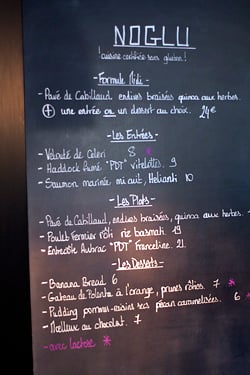 NOGLU
! cuisine certifiée sans gluten !
- Formule Midi -
- Pavé de Cabillaud endives braisées quinoa aux herbes.
+ une entrée ou un dessert au choix. 24€
- Les Entrées -
- Velouté de Céleri 8 *
- Haddock fumé "PDT" vitelottes. 9
- Saumon mariné mi cuit, Hélianti 10
- Les Plats -
- Pavé de Cabillaud, endives braisées, quinoa aux herbes.
- Poulet Fermier rôti riz basmati 19
- Entrecôte Aubrac "PDT" Franceline. 21.
- Les Desserts -
- Banana Bread 6
- Gateau de Polenta à l'orange, prunes rôties. 7 *
- Pudding pommes-raisins secs pécan caramélisées. 6 *
- Moelleux au chocolat. 7
- avec lactose *